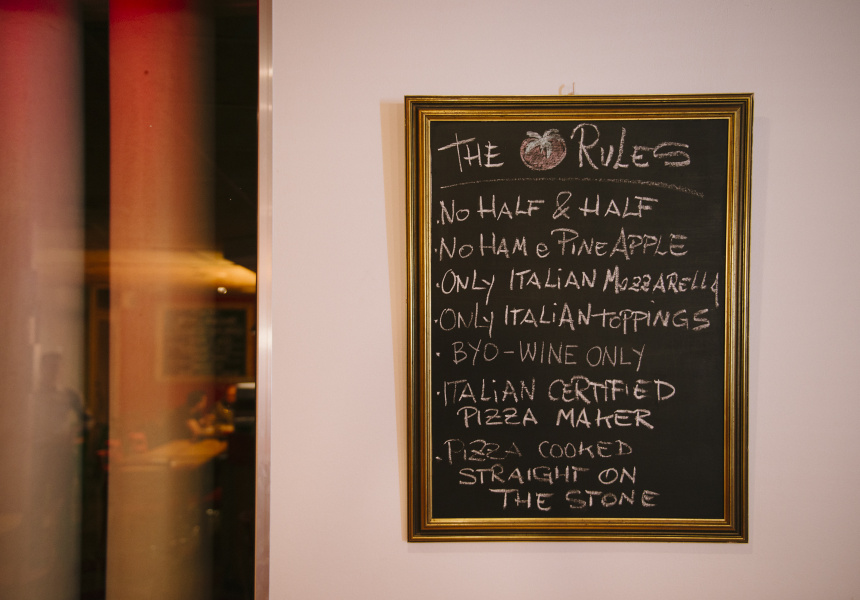 THE RULES
.NO HALF & HALF
.NO HAM e PINEAPPLE
.ONLY ITALIAN MOZZARELLA
.ONLY ITALIAN TOPPINGS
. BYO-WINE ONLY
.ITALIAN CERTIFIED
PIZZA MAKER
.PIZZA COOKED
STRAIGHT ON
THE STONE